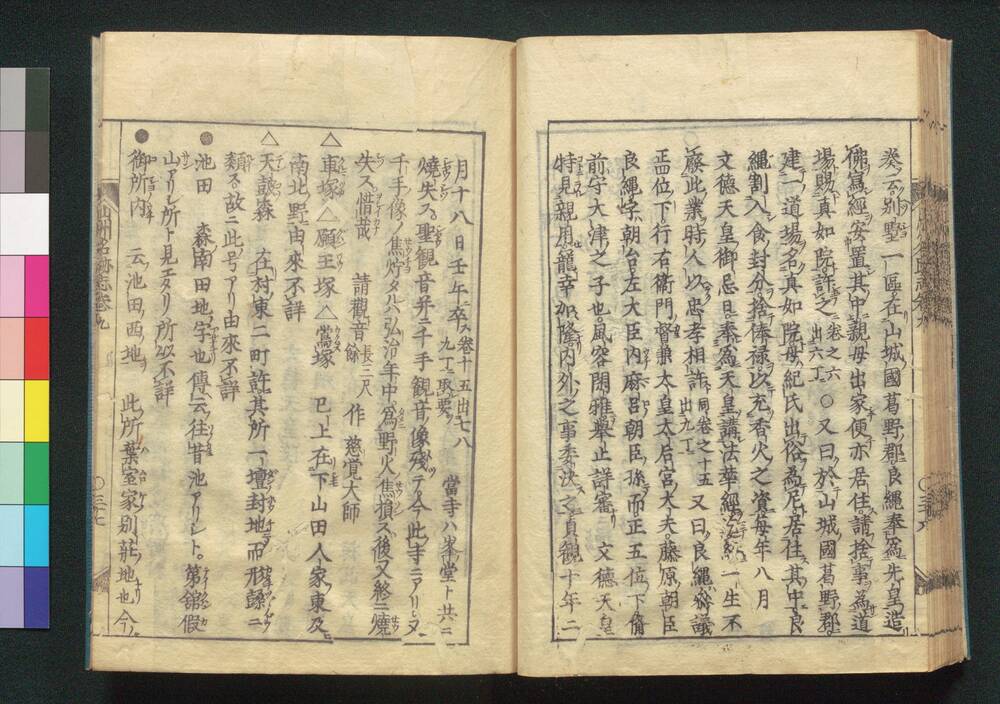 癸云別墅一區在山城國葛野郡良縄奉為先皇造
佛寫經安置其中親母出家便亦居住請捨事為道
場賜真如院許之 卷之六出六丁 ○又曰於山城國葛野郡
建一道場名真如院母紀氏出俗為尼居住其中良
縄割入食封分捨俸禄以充香火之資每年八月
文德天皇御忌日奉為天皇講法華經 一生不
廢此業時人以忠孝相許 同卷之十五出九丁 又曰良縄參議
正四位下行右衛門督兼太皇太后宮大夫藤原朝臣
良縄字朝台左大臣内麻呂朝臣孫而正五位下備
前守大津之子也風容閑雅舉止詳審 文德天皇
特見親用龍幸加隆内外之事委决之貞觀十年二
月十八日壬午卒ス 卷十五出七八九丁取要 當寺ハ峯堂ト共ニ
燒失ス聖觀音并ニ千手觀音ノ像殘テ今此寺ニアリシヌ
千手ノ像ノ焦灼タルハ弘治年中ニ為野火焦損ス後又終ニ燒
失ス惜哉 請觀音餘 長三尺 作 慈覺大師
△車塚 △願王塚 △鴬塚 已上在下山田人家東及
南北ノ野由來不詳
△天鼓森 在村東二町許其所一壇封地而形鼓ニ
類スル故ニ此号アリ由來不詳
●池田 森南田地ノ字也傳云往昔池アリシト。第舘假
山アリシ所ト見エタリ所以不詳
●御所内 云池田ノ西ノ地 此所葉室家別莊ノ地也今
山州名跡志卷九